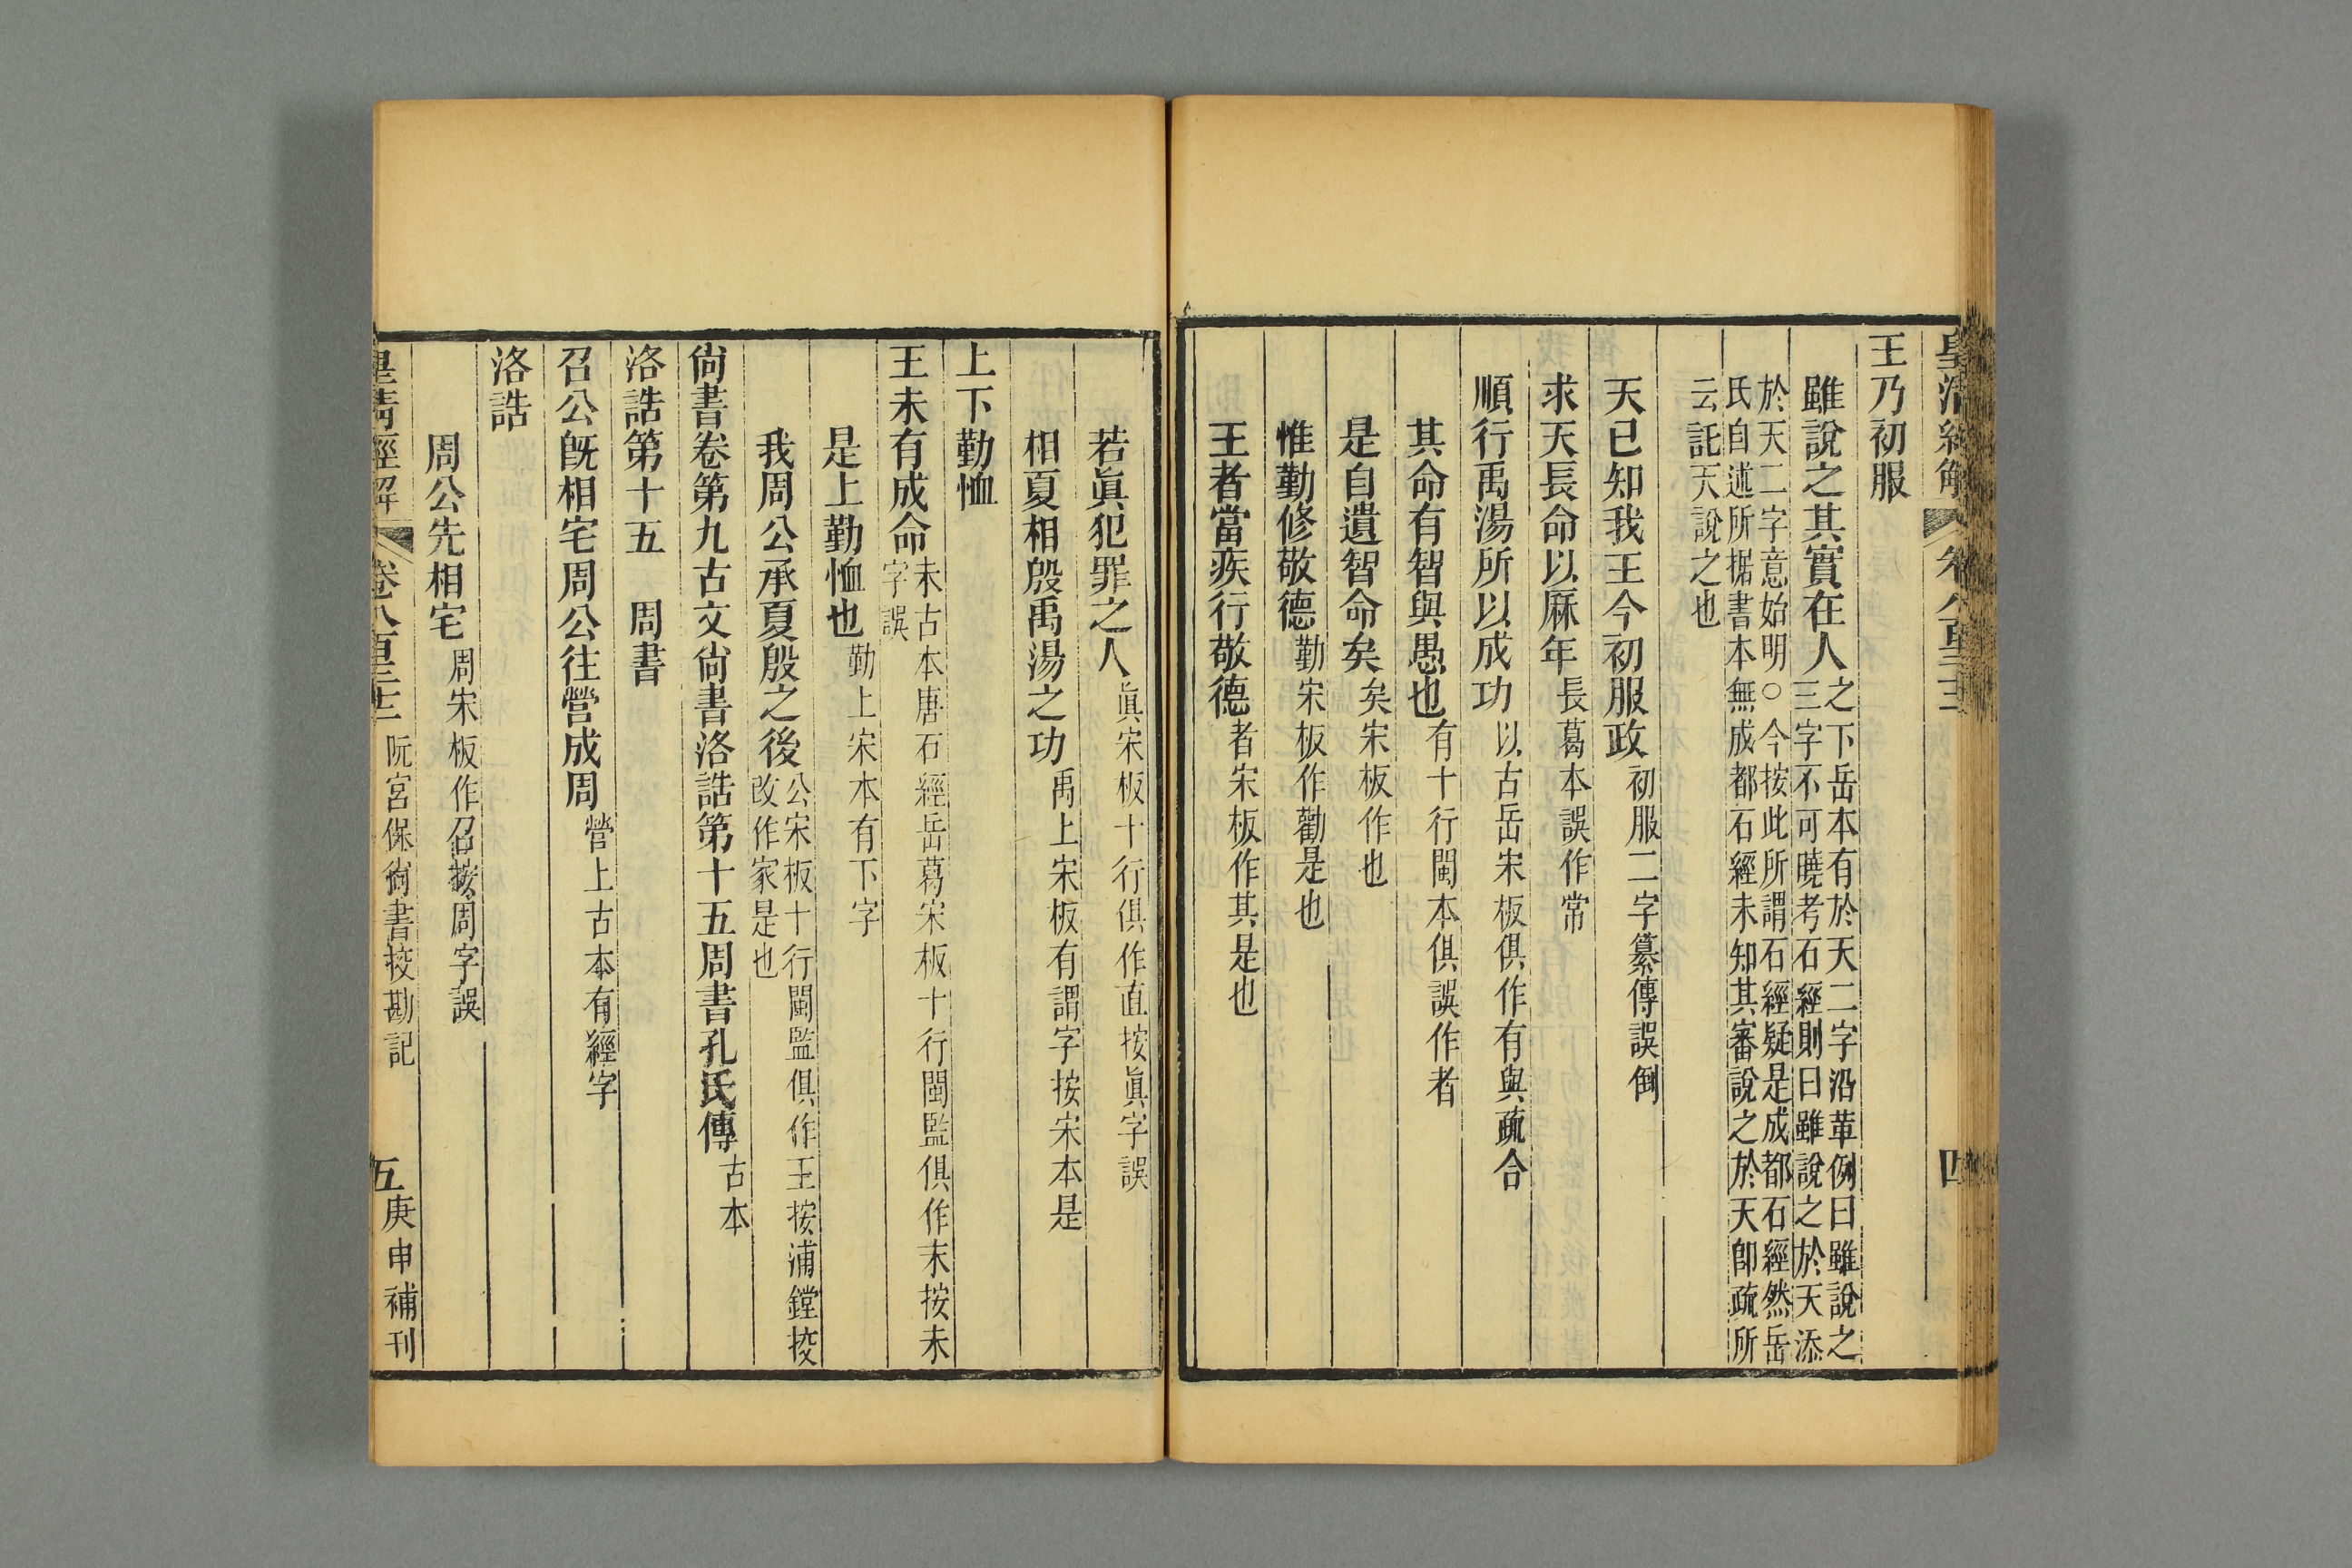 皇清經解 卷八百三十三 四
王乃初服
雖說之其實在人之下岳本有於天二字沿革例曰雖說之
三字不可曉考石經則曰雖說之於天添
於天二字意始明○今按此所謂石經疑是成都石經然岳
氏自述所據書本無成都石經未知其審說之於天卽疏所
云託天說之也
天已知我王今初服政初服二字纂傳誤倒
求天長命以厤年長葛本誤作常
順行禹湯所以成功以古岳宋板俱作有與疏合
其命有智與愚也有十行閩本俱誤作者
是自遺智命矣矣宋板作也
惟勤修敬德勤宋板作勸是也
王者當疾行敬德者宋板作其是也
若眞犯罪之人眞宋板十行俱作直按眞字誤
相夏相殷禹湯之功禹上宋板有謂字按宋本是
上下勤恤
王未有成命未古本唐石經岳葛宋板十行閩監俱作末按未
字誤
是上勤恤也勤上宋本有下字
我周公承夏殷之後公宋板十行閩監俱作王按浦鏜挍
改作家是也
尙書卷第九古文尙書洛誥第十五周書孔氏傳古本
洛誥第十五 周書
召公旣相宅周公往營成周營上古本有經字
洛誥
周公先相宅周宋板作召按周字誤
皇清經解 卷八百三十三 阮宮保尙書挍勘記 五 庚申補刊